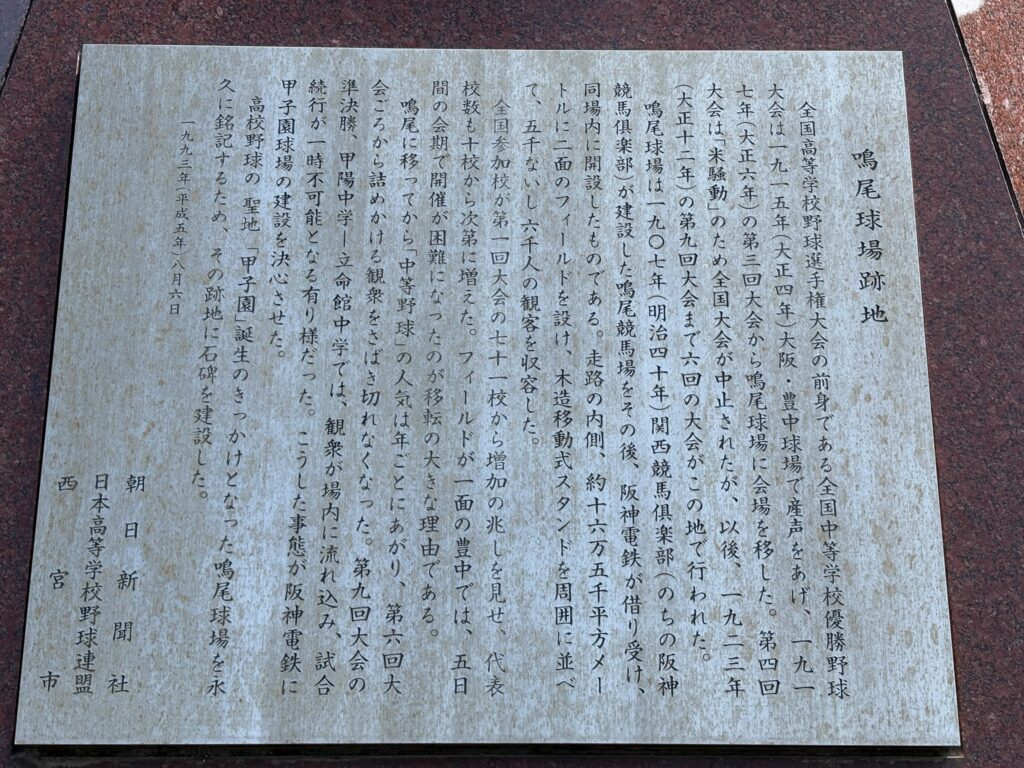 鳴尾球場跡地
全国高等学校野球選手権大会の前身である全国中等学校優勝野球
大会は一九一五年(大正四年)大阪・豊中球場で産声をあげ、一九一
七年(大正六年)の第三回大会から鳴尾球場に会場を移した。第四回
大会は「米騒動」のため全国大会が中止されたが、以後、一九二三年
(大正十二年)の第九回大会まで六回の大会がこの地で行われた。
鳴尾球場は一九〇七年(明治四十年)関西競馬倶楽部(のちの阪神
競馬倶楽部)が建設した鳴尾競馬場をその後、阪神電鉄が借り受け、
同場内に開設したものである。走路の内側、約十六万五千平方メー
トルに二面のフィールドを設け、木造移動式スタンドを周囲に並べ
て、五千ないし六千人の観客を収容した。
全国参加校が第一回大会の七十一校から増加の兆しを見せ、代表
校数も十校から次第に増えた。フィールドが一面の豊中では、五日
間の会期で開催が困難になったのが移転の大きな理由である。
鳴尾に移ってから「中等野球」の人気は年ごとにあがり、第六回大
会ごろから詰めかける観衆をさばき切れなくなった。第九回大会の
準決勝、甲陽中学―立命館中学では、観衆が場内に流れ込み、試合
続行が一時不可能となる有り様だった。こうした事態が阪神電鉄に
甲子園球場の建設を決心させた。
高校野球の聖地「甲子園」誕生のきっかけとなった鳴尾球場を永
久に銘記するため、その跡地に石碑を建設した。
一九九三年(平成五年)八月六日
朝日新聞社
日本高等学校野球連盟
西宮市